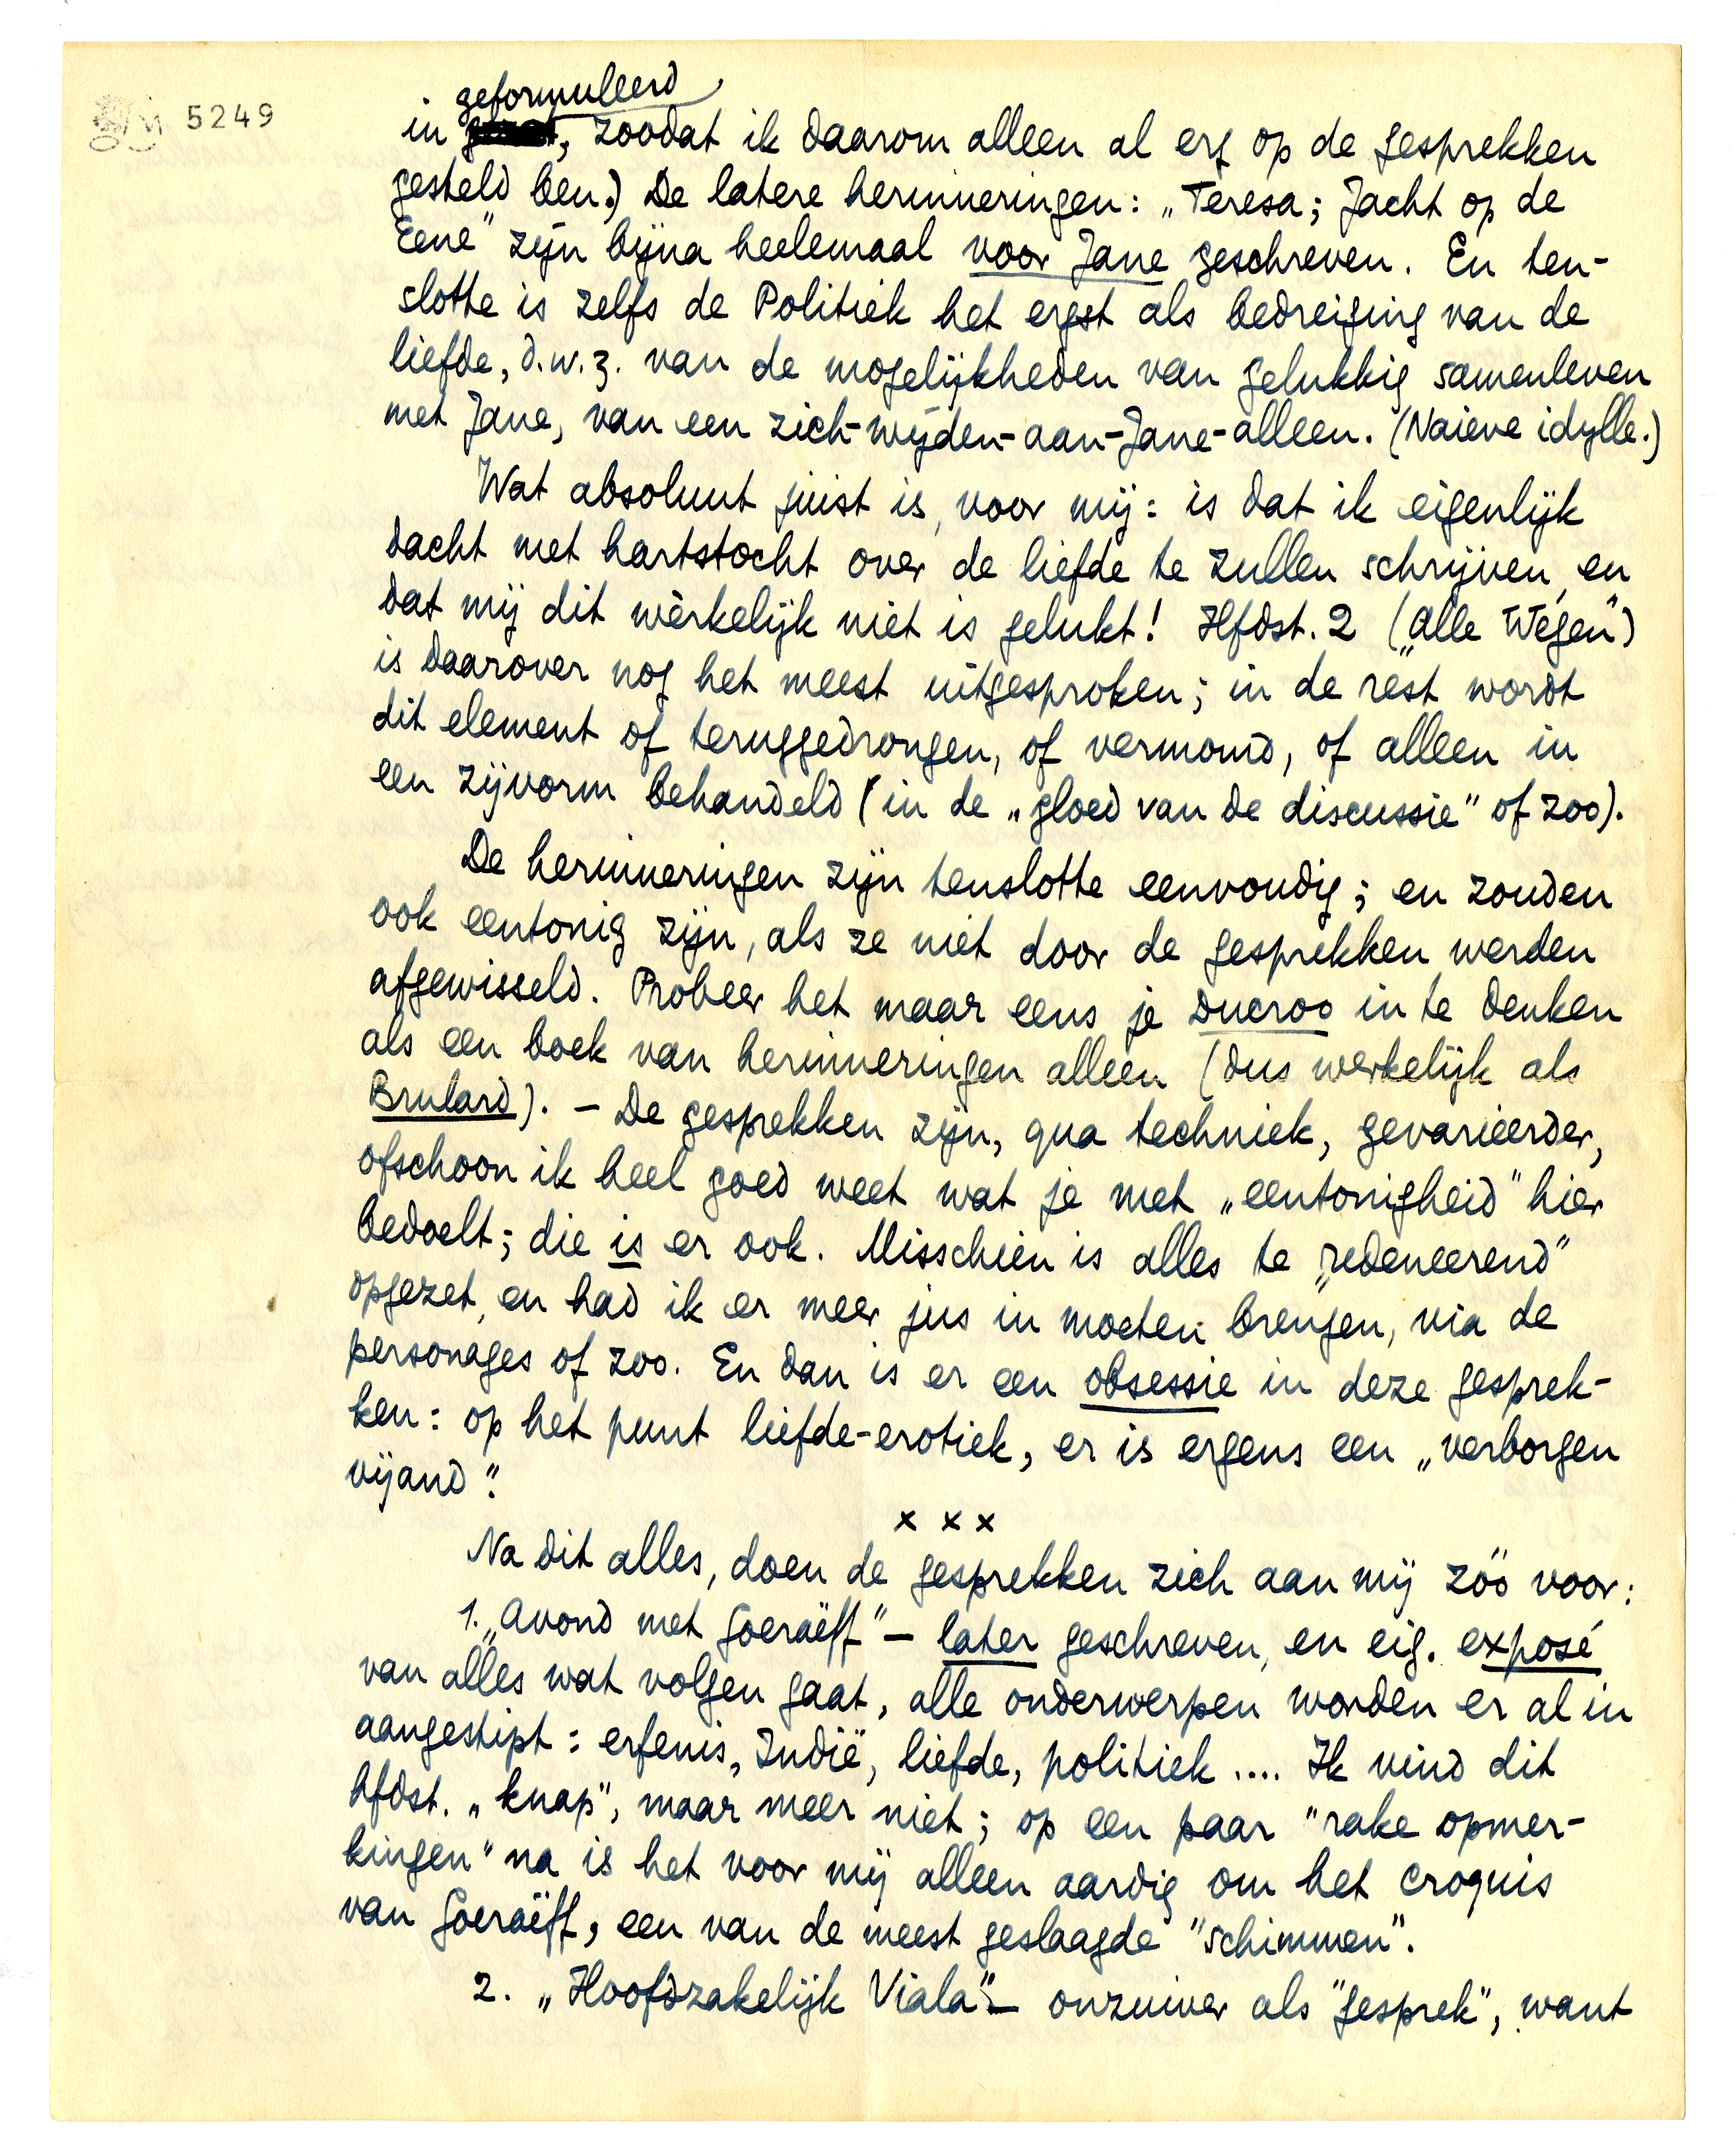 5249
geformuleerd
in , zoodat ik daarom alleen al erg op de gesprekken
gesteld ben.) De latere herinneringen: „Teresa; Jacht op de
Eene" zijn bijna heelemaal voor Jane geschreven. En ten-
slotte is zelfs de Politiek het ergst als bedreiging van de
liefde, d.w.z. van de mogelijkheden van gelukkig samenleven
met Jane, van een zich-wijden-aan-Jane-alleen. (Naieve idylle.)
Wat absoluut juist is, voor mij: is dat ik eigenlijk
dacht met hartstocht over de liefde te zullen schrijven, en
dat mij dit wèrkelijk niet is gelukt! Hfdst. 2 („Alle Wegen")
is daarover nog het meest uitgesproken; in de rest wordt
dit element of teruggedrongen, of vermomd, of alleen in
een zijvorm behandeld (in de „gloed van de discussie" of zoo).
De herinneringen zijn tenslotte eenvoudig; en zouden
ook eentonig zijn, als ze niet door de gesprekken werden
afgewisseld. Probeer het maar eens je Ducroo in te denken
als een boek van herinneringen alleen (dus werkelijk als
Brulard). – De gesprekken zijn, qua techniek, gevarieerder,
ofschoon ik heel goed weet wat je met „eentonigheid" hier
bedoelt; die is er ook. Misschien is alles te „redeneerend"
opgezet, en had ik er meer jus in moeten brengen, via de
personages of zoo. En dan is er een obsessie in deze gesprek-
ken: op het punt liefde-erotiek, er is ergens een „verborgen
vijand".
x x x
Na dit alles, doen de gesprekken zich aan mij zóó voor:
1. „Avond met Goeraëff" – later geschreven, en eig. exposé
van alles wat volgen gaat, alle onderwerpen worden er al in
aangestipt: erfenis, Indië, liefde, politiek .... Ik vind dit
hfdst. „knap", maar meer niet; op een paar "rake opmer-
kingen" na is het voor mij alleen aardig om het croquis
van Goeraëff, een van de meest geslaagde "schimmen".
2. „Hoofdzakelijk Viala" – onzuiver als "gesprek", want